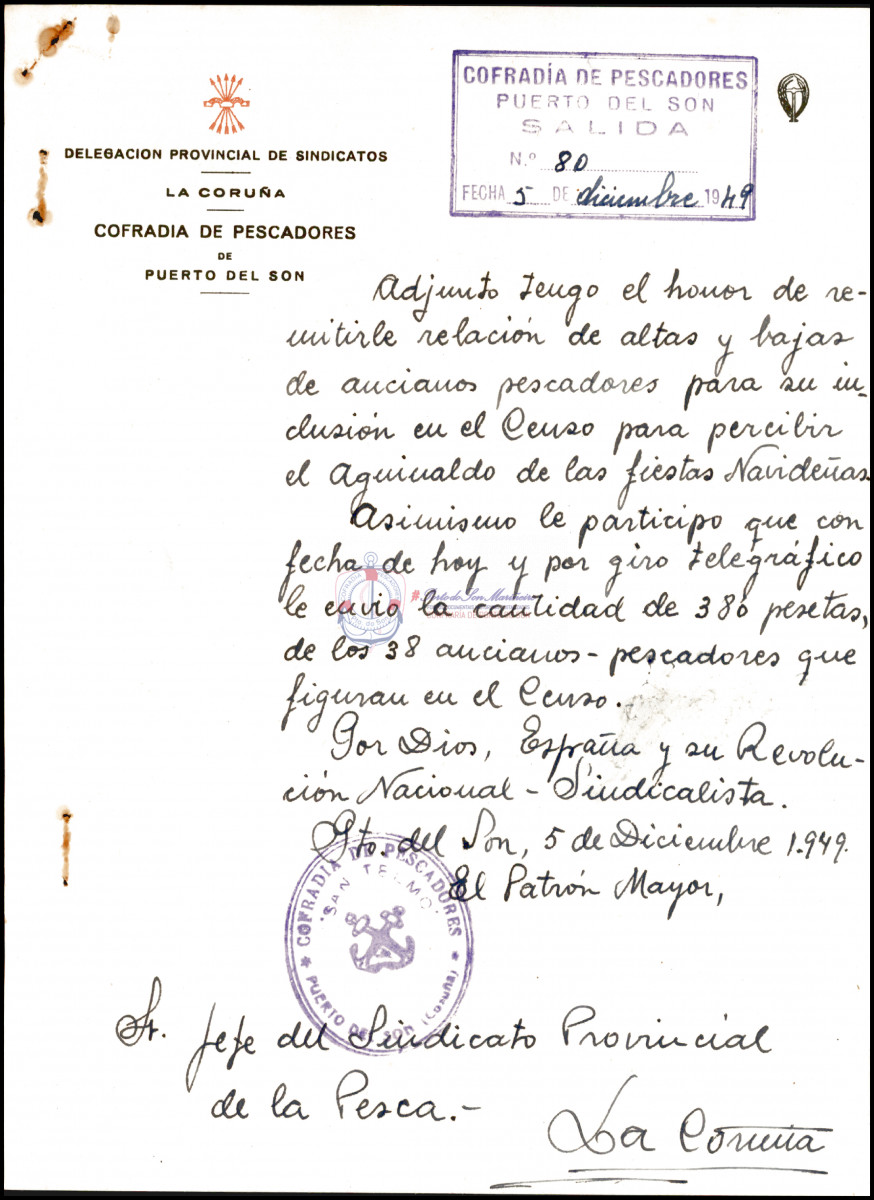 DELEGACION PROVINCIAL DE SINDICATOS
LA CORUÑA
COFRADIA DE PESCADORES
DE
PUERTO DEL SON
COFRADÍA DE PESCADORES
PUERTO DEL SON
SALIDA
N.º 80
FECHA 5 DE diciembre 1949
Adjunto tengo el honor de re-
mitirle relación de altas y bajas
de ancianos pescadores para su in-
clusión en el Censo para percibir
el Aguinaldo de las fiestas Navideñas.
Asimismo le participo que con
fecha de hoy y por giro telegráfico
le envio la cantidad de 380 pesetas,
de los 38 ancianos-pescadores que
figuran en el Censo.
Por Dios, España y su Revolu-
ción Nacional-Sindicalista.
Pto. del Son, 5 de Diciembre 1.949.
El Patrón Mayor,
* COFRADIA DE PESCADORES *
"SAN TELMO"
PUERTO DEL SON (Coruña)
Sr. Jefe del Sindicato Provincial
de la Pesca.-
La Coruña